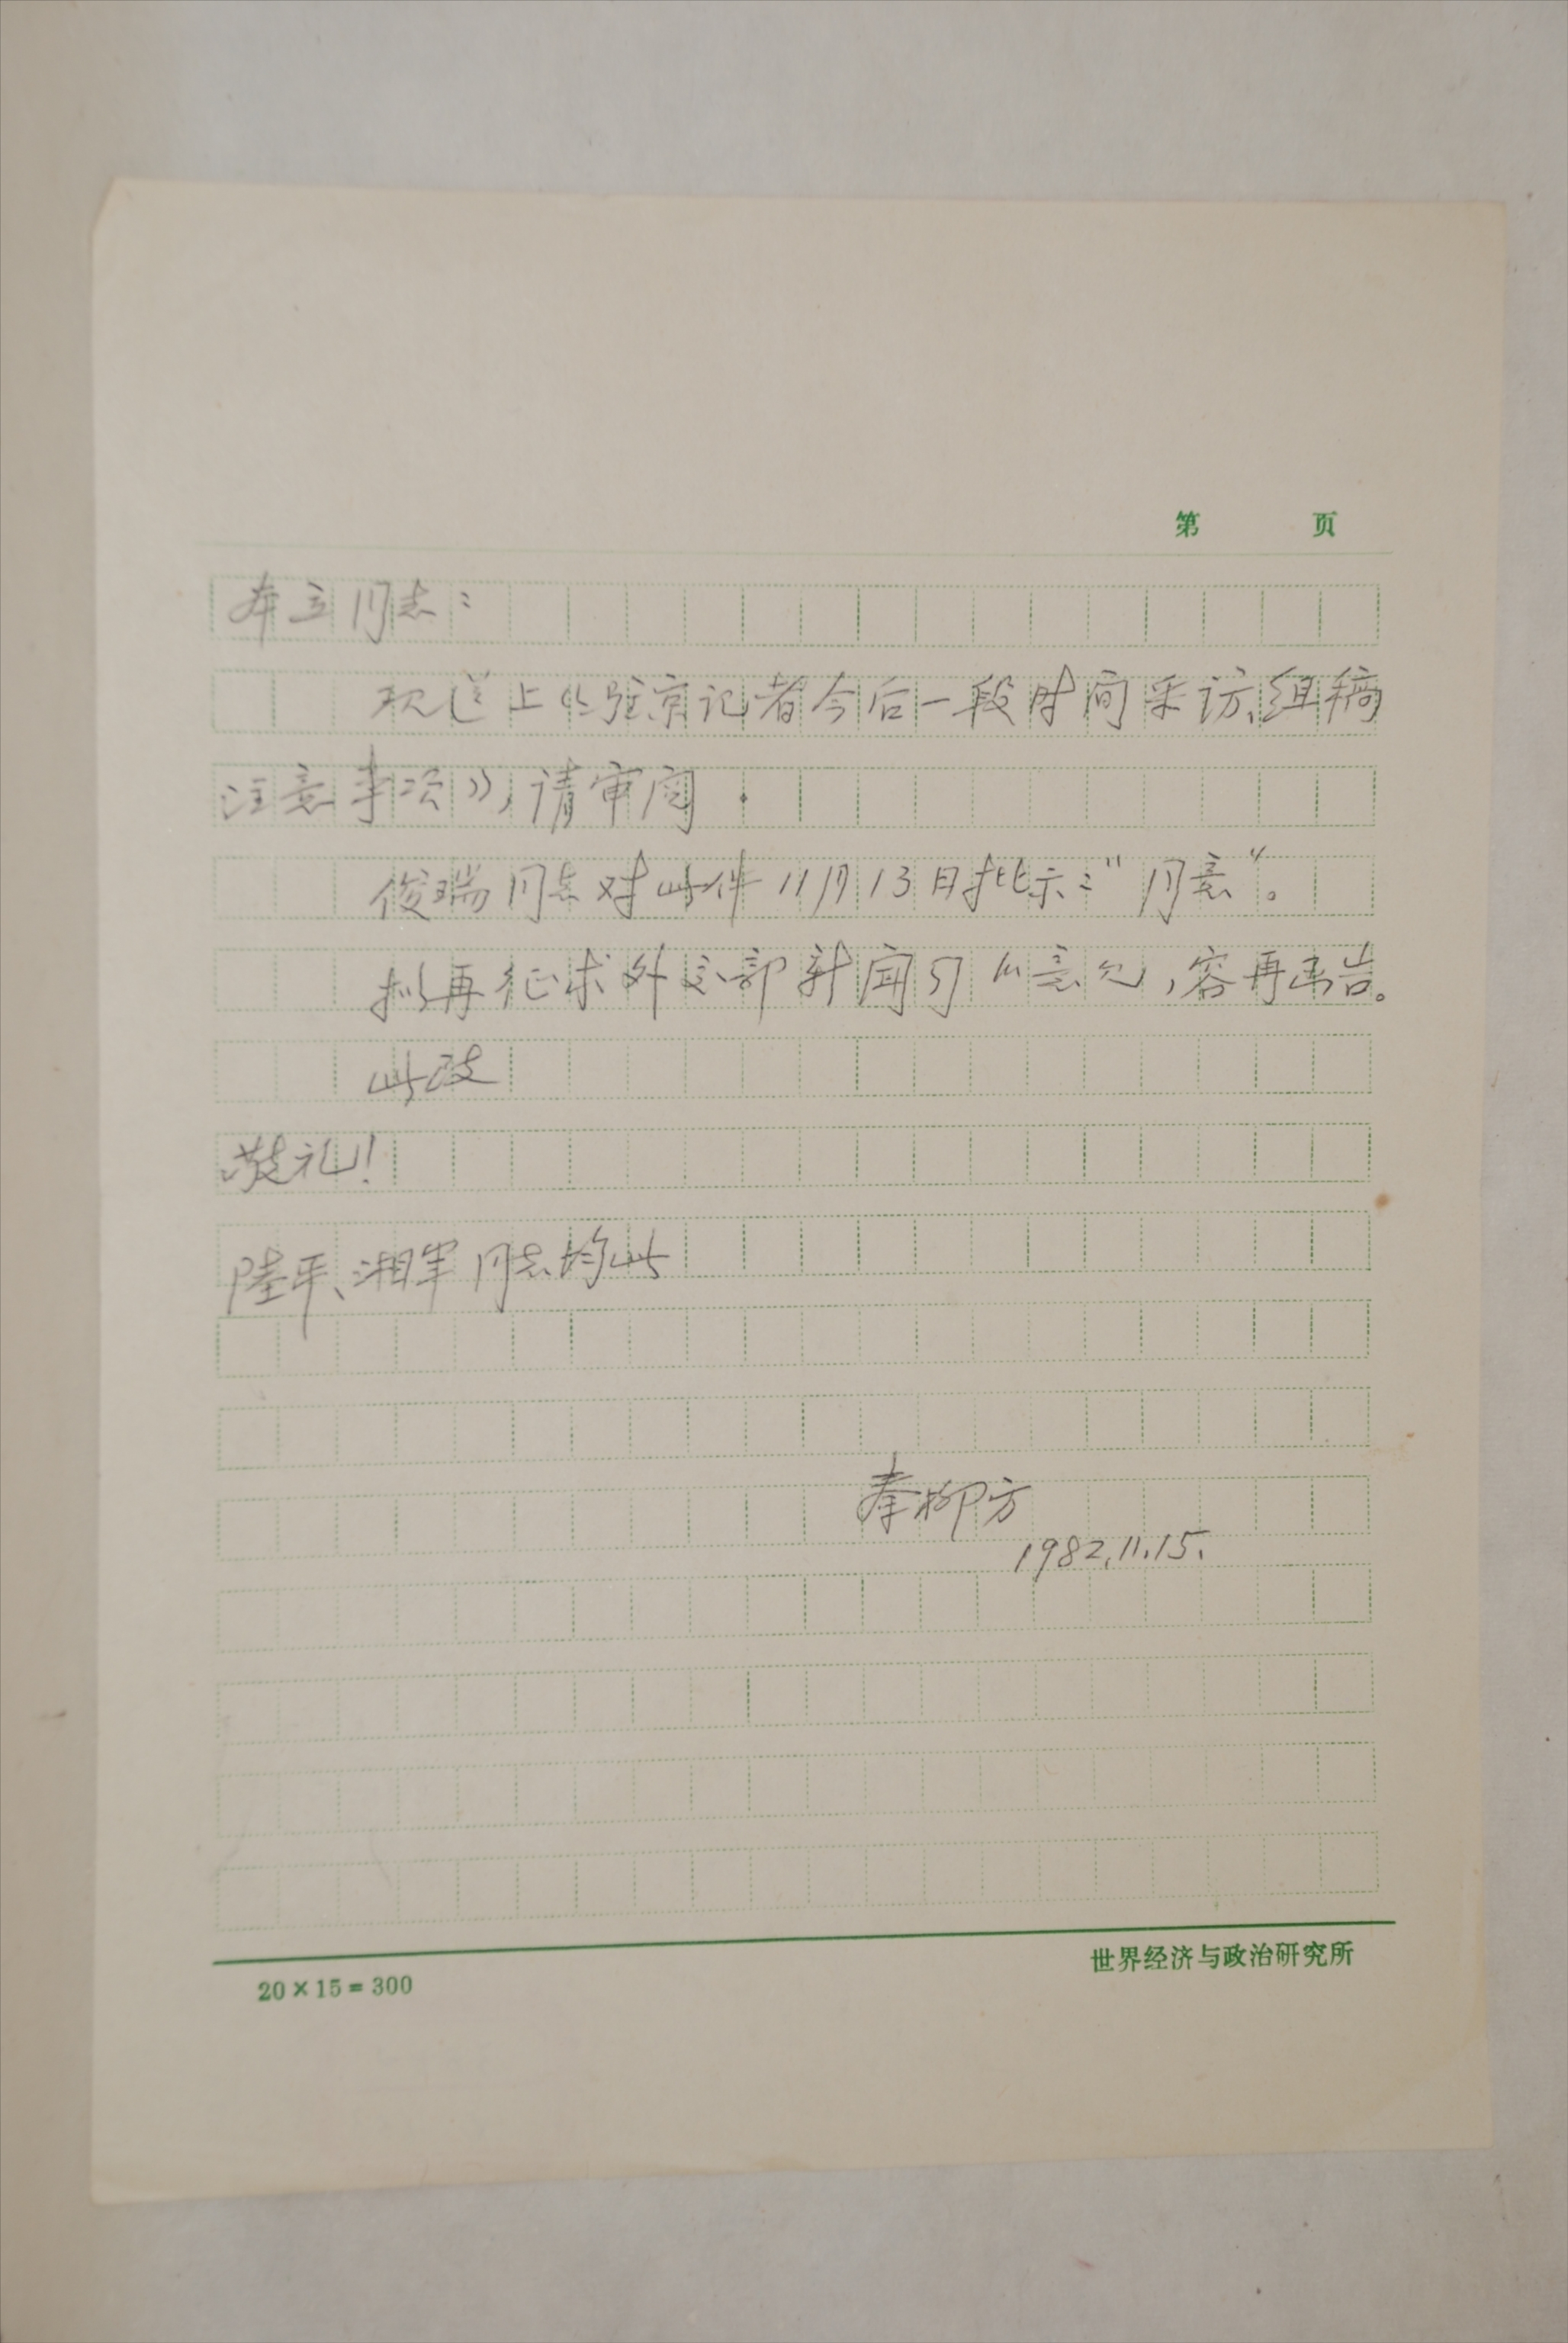 第 页
本立同志：
现送上《驻京记者今后一段时间采访、组稿
注意事项》，请审阅．
俊瑞同志对此件11月13日批示：“同意”。
拟再征求外交部新闻司的意见，容再函告。
此致
敬礼！
陆平、湘军同志均此
秦柳方
1982.11.15.
20×15=300
世界经济与政治研究所